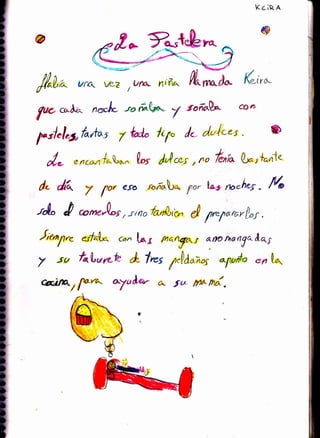 KEIRA
La Pastelera
Había una vez, una niña llamada Keira
que cada noche soñaba y soñaba con
pasteles, tartas y todo tipo de dulces.
Le encantaban los dulces, no tenía bastante
de día y por eso soñaba por las noches. No
solo el comerlos, sino también el prepararlos.
Siempre estaba con las mangas arremangadas
y su taburete de tres peldaños apunto en la
cocina, para ayudar a su mamá.